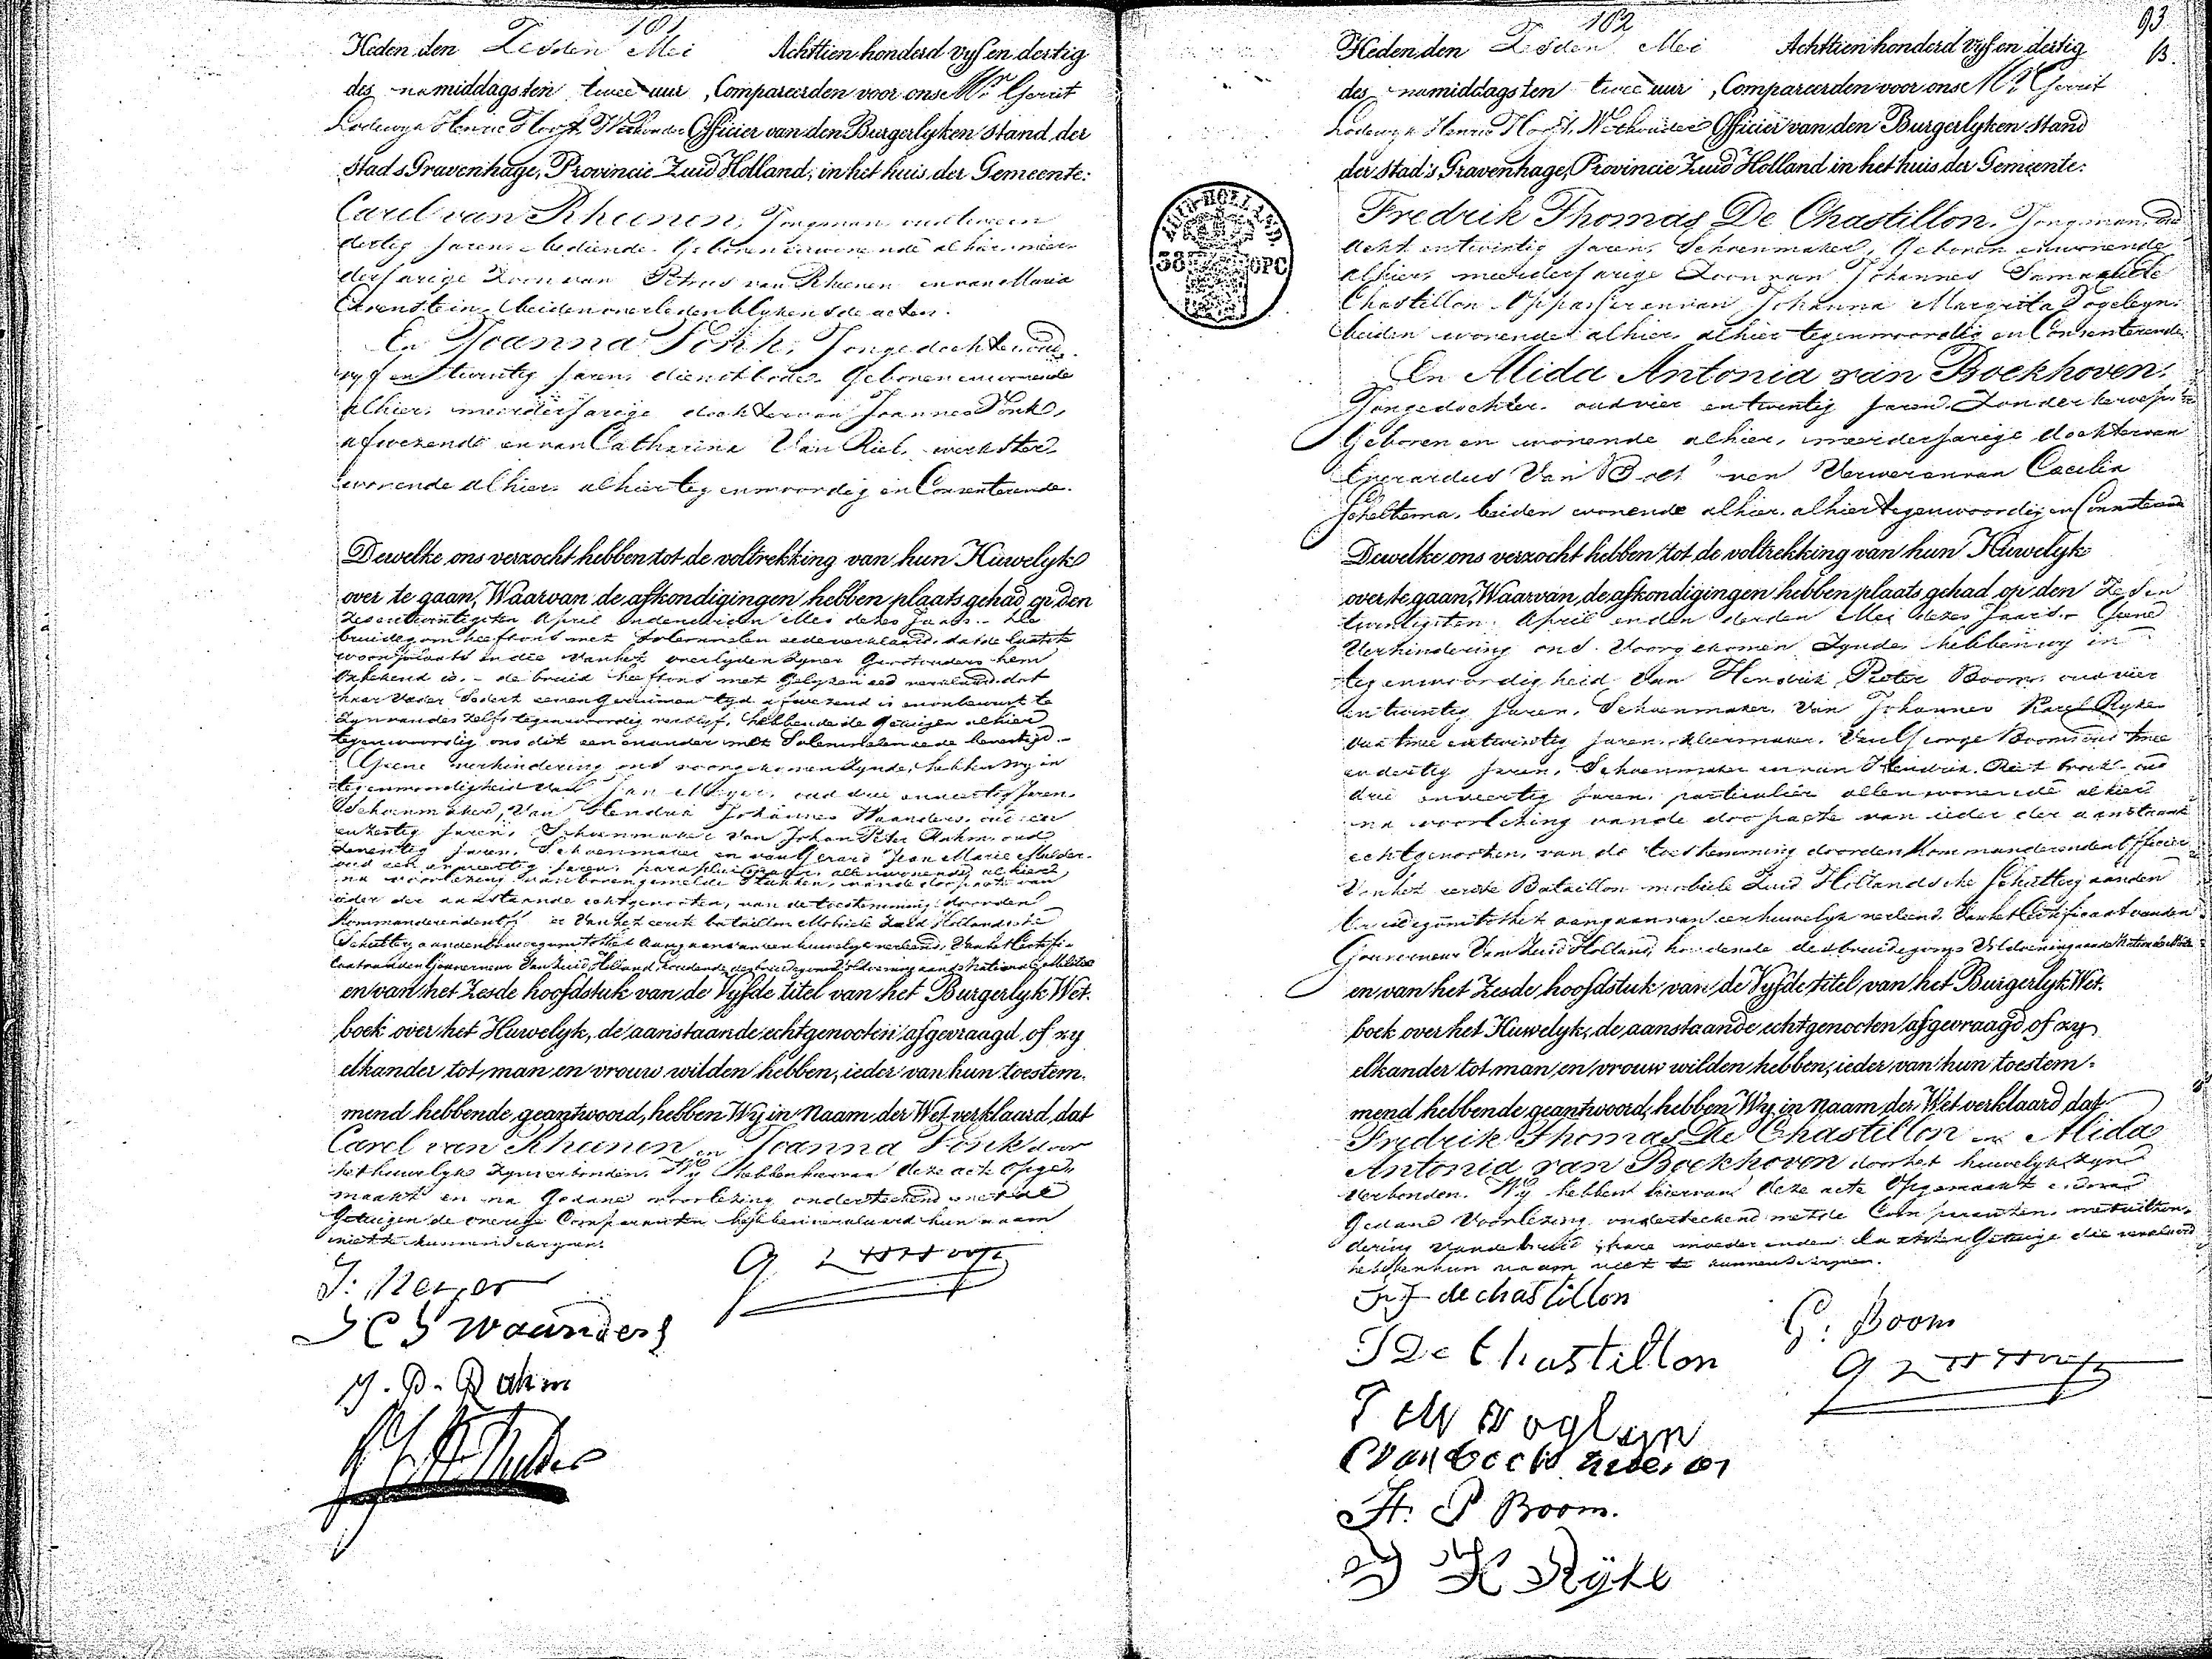 101
Heden den Zesden Mei Achttien honderd vyf en dertig
des namiddags ten twee uur, Compareerden voor ons Mr. Gerrit
Lodewyk Henric Hooft, Wethouder Officier van den Burgerlyken stand der
stad sGravenhage, Provincie Zuid Holland, in het huis der Gemeente:
Carel van Rheenen, Jongman oud
dertig Jaren, bediende, Geboren en wonende alhier, meer-
derjarige Zoon van Petrus van Rheenen en van Maria
beiden overleden blykens de acten.
En Joanna Vonk, Jongedochter oud
vyf en twintig Jaren, dienstbode, Geboren en wonende
alhier, meerderjarige dochter van Joannes Vonk,
afwezende en van Catharina Van Riel, werkster,
wonende alhier, alhier tegenwoordig en Consenterende.
Dewelke ons verzocht hebben tot de voltrekking van hun Huwelyk
over te gaan, Waarvan de afkondigingen hebben plaats gehad op den
zesentwintigsten April en den derden Mei dezes Jaars. De
bruidegom heeft ons met solemnelen eede verklaard, dat de laatste
woonplaats en die van het overlyden zyner Grootouders hem
onbekend is. - de bruid heeft ons met gelyken eed verklaard, dat
haar Vader sedert eenen geruimen tyd afwezend is en onbewust te
zyn van des zelfs tegenwoordig verblyf, hebbende de Getuigen alhier
tegenwoordig ons dit een en ander met Solemnelen eede bevestigd. -
Geene verhindering ons voorgekomen zynde, hebben wy in
tegenwoordigheid van Jan Meyer, oud drie en veertig Jaren,
Schoenmaker, Van Hendrik Johannes Waanders, oud
en dertig Jaren, Schoenmaker van Johan Peter Rahm, oud
zeventig Jaren, Schoenmaker en van Gerard Jean Marie Mulder,
oud een en veertig Jaren, allen wonende alhier
na voorlezing van bovengemelde Stukken, van de doopacte van
ieder der aanstaande echtgenooten, van de toestemming door den
Kommanderende Officier Van het eerste bataillon Mobiele Zuid Hollandsche
Schuttery aan den bruidegom tot het aangaan van een huwelyk verleend, Van het Certifi-
caat van den Gouverneur Van Zuid Holland, houdende des bruidegoms Voldoening aan de Nationale Militie
en van het Zesde hoofdstuk van de Vyfde titel van het Burgerlyk Wet-
boek over het Huwelyk, de aanstaande echtgenooten afgevraagd of zy
elkander tot man en vrouw wilden hebben, ieder van hun toestem-
mend hebbende geantwoord, hebben Wy in Naam der Wet verklaard, dat
Carel van Rheenen en Joanna Vonk door
het huwelyk zyn verbonden. Wy hebben hiervan deze acte opge-
maakt en na Gedane voorlezing onderteekend met de
Getuigen de overige Comparanten hebben verklaard hun naam
niet te kunnen schryven.
J: Meyer
G L H Hooft
H J Waanders
J. P. Rahm
G J M Mulder
102
93
B.
Heden den Zesden Mei Achttien honderd vyf en dertig
des namiddags ten twee uur, Compareerden voor ons Mr. Gerrit
Lodewyk Henric Hooft, Wethouder Officier van den Burgerlyken stand
der stad 's Gravenhage, Provincie Zuid Holland in het huis der Gemeente:
ZUID-HOLLAND.
38 OPC
Fredrik Thomas De Chastillon, Jongman, oud
acht en twintig Jaren, Schoenmaker, Geboren en wonende
alhier, meerderjarige Zoon van Johannes de
Chastillon Oppasser en van Johanna Margrita Vogeleyn,
beiden wonende alhier, alhier tegenwoordig en Consenterende.
En Alida Antonia van Boekhoven,
Jongedochter, oud vier en twintig Jaren, Zonder beroep,
Geboren en wonende alhier, meerderjarige dochter van
Everardus Van Boekhoven Verwer en van Caecilia
Scheltema, beiden wonende alhier, alhier tegenwoordig en Consenterende
Dewelke ons verzocht hebben tot de voltrekking van hun Huwelyk
over te gaan, Waarvan de afkondigingen hebben plaats gehad op den zes en
twintigsten April en den derden Mei dezes Jaars. Geene
Verhindering ons Voorgekomen Zynde, hebben wy in
tegenwoordigheid Van Hendrik Pieter Boom, oud vier
en twintig Jaren, Schoenmaker, Van Johannes Karel Ryke
oud twee en twintig Jaren, kleermaker, Van George Boom oud twee
en dertig Jaren, Schoenmaker en van Hendrik oud
drie en veertig Jaren, particulier allen wonende alhier
na voorlezing van de doopacte van ieder der aanstaande
echtgenooten, van de toestemming door den Kommanderenden Officier
Van het eerste Bataillon mobiele Zuid Hollandsche Schuttery aan den
bruidegom tot het aangaan van een huwelyk verleend, Van het Certificaat van den
Gouverneur Van Zuid Holland, houdende des bruidegoms Voldoening aan de Nationale Militie
en van het Zesde hoofdstuk van de Vyfde titel van het Burgerlyk Wet-
boek over het Huwelyk, de aanstaande echtgenooten afgevraagd of zy
elkander tot man en vrouw wilden hebben, ieder van hun toestem-
mend hebbende geantwoord, hebben Wy in Naam der Wet verklaard dat
Fredrik Thomas De Chastillon en Alida
Antonia van Boekhoven door het huwelyk zyn
verbonden. Wy hebben hiervan deze acte Opgemaakt en na
Gedane Voorlezing onderteekend met de Comparanten, met uitzon-
dering van de bruid, hare moeder en den laatsten Getuige die verklaard
hebben hun naam niet te kunnen schryven.
F T de chastillon
G: Boom
J De Chastillon
G L H Hooft
J M Voglyn
E van Boekhoven
H. P Boom.
J K Rÿke